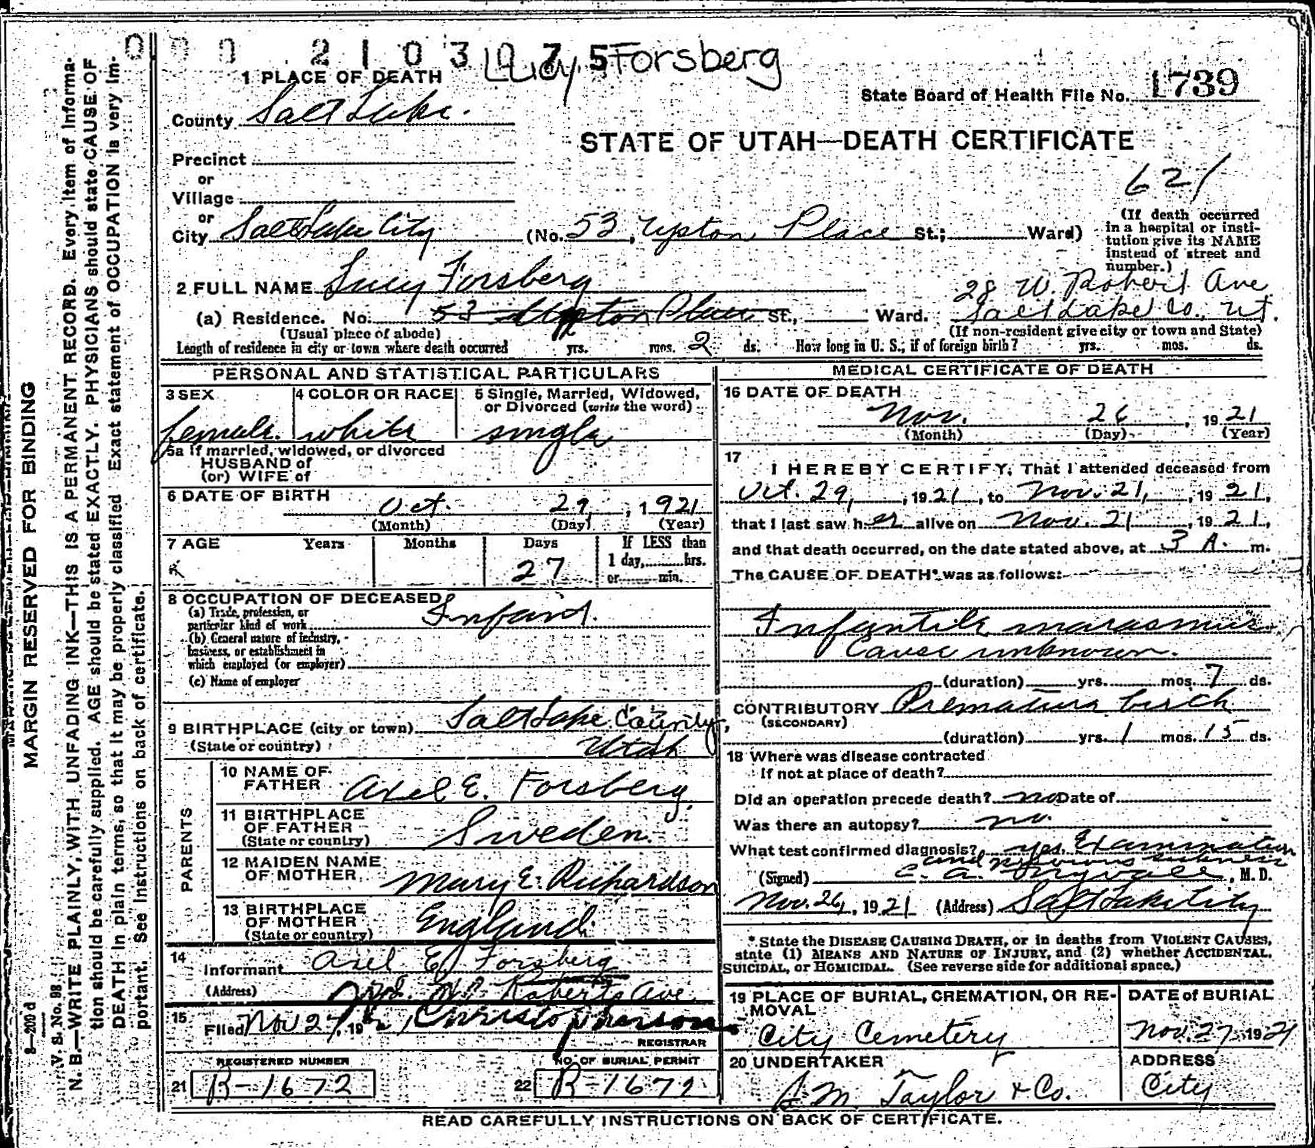 MARGIN RESERVED FOR BINDING
8—200 d
V. S. No. 98
N. B.—WRITE PLAINLY, WITH UNFADING INK—THIS IS A PERMANENT RECORD. Every item of informa-
tion should be carefully supplied. AGE should be stated EXACTLY. PHYSICIANS should state CAUSE OF
DEATH in plain terms, so that it may be properly classified. Exact statement of OCCUPATION is very im-
portant. See instructions on back of certificate.
Forsberg
1 PLACE OF DEATH
State Board of Health File No. 1739
County Salt Lake.
STATE OF UTAH—DEATH CERTIFICATE
Precinct
or
Village
621
or
City Salt Lake City (No. 53, Upton Place St.; Ward)
(If death occurred
in a hospital or insti-
tution give its NAME
instead of street and
number.)
2 FULL NAME Lucy Forsberg
28 W. Robert Ave
(a) Residence. No. 53 Upton Place St., Ward. Salt Lake Co. Ut.
(Usual place of abode) (If non-resident give city or town and State)
Length of residence in city or town where death occurred yrs. mos. 2 ds. How long in U. S., if of foreign birth? yrs. mos. ds.
PERSONAL AND STATISTICAL PARTICULARS
3 SEX 4 COLOR OR RACE 5 Single, Married, Widowed,
or Divorced (write the word)
female. white single
5a If married, widowed, or divorced
HUSBAND of
(or) WIFE of
6 DATE OF BIRTH Oct. 29, 1921
(Month) (Day) (Year)
7 AGE Years Months Days If LESS than
1 day, hrs.
27 or min.
8 OCCUPATION OF DECEASED
(a) Trade, profession, or
particular kind of work Infant.
(b) General nature of industry,
business, or establishment in
which employed (or employer)
(c) Name of employer
9 BIRTHPLACE (city or town) Salt Lake County,
(State or country) Utah
PARENTS
10 NAME OF
FATHER Axel E. Forsberg
11 BIRTHPLACE
OF FATHER
(State or country) Sweden.
12 MAIDEN NAME
OF MOTHER Mary E. Richardson
13 BIRTHPLACE
OF MOTHER
(State or country) England.
14
Informant Axel E. Forsberg
(Address) Roberts Ave.
15
Filed Nov 27, 19
REGISTRAR
REGISTERED NUMBER NO. OF BURIAL PERMIT
21 R-1672 22 R-1672
MEDICAL CERTIFICATE OF DEATH
16 DATE OF DEATH
Nov. 26, 1921
(Month) (Day) (Year)
17
I HEREBY CERTIFY, That I attended deceased from
Oct. 29, 1921, to Nov. 21, 1921,
that I last saw her alive on Nov. 21, 1921,
and that death occurred, on the date stated above, at 3 A. m.
The CAUSE OF DEATH* was as follows:
Infantile marasmus
Cause unknown.
(duration) yrs. mos. 7 ds.
CONTRIBUTORY Premature birth
(SECONDARY)
(duration) yrs. 1 mos. 15 ds.
18 Where was disease contracted
If not at place of death?
Did an operation precede death? no Date of
Was there an autopsy? no.
What test confirmed diagnosis? yes Examination
and
(Signed) C. A. M.D.
Nov. 26, 1921 (Address) Salt Lake City
*State the DISEASE CAUSING DEATH, or in deaths from VIOLENT CAUSES,
state (1) MEANS AND NATURE OF INJURY, and (2) whether ACCIDENTAL,
SUICIDAL, or HOMICIDAL. (See reverse side for additional space.)
19 PLACE OF BURIAL, CREMATION, OR RE-
MOVAL DATE OF BURIAL
City Cemetery Nov. 27, 1921
20 UNDERTAKER ADDRESS
S. M. Taylor & Co. City
READ CAREFULLY INSTRUCTIONS ON BACK OF CERTIFICATE.